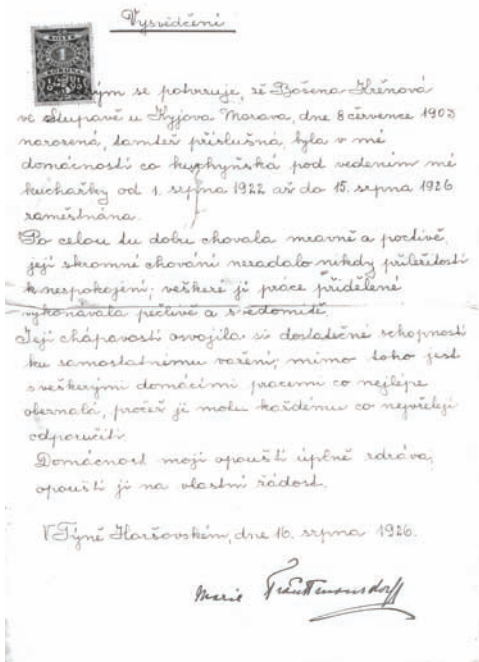 Vysvědčení
1
KORUNA
ým se potvrzuje, že Božena Křenová
ve Stupavě u Kyjova Morava, dne 8 července 1903
narozená, tamtéž příslušná, byla v mé
domácnosti co kuchyňská pod vedením mé
kuchařky od 1. srpna 1922 až do 15. srpna 1926
zaměstnána.
Po celou tu dobu chovala mravně a poctivě,
její skromné chování nezadalo nikdy příležitosti
k nespokojení; veškeré jí práce přidělené
vykonávala pečlivě a svědomitě.
Její chápavostí osvojila si dostatečné schopnosti
ku samostatnému vaření; mimo toho jest
sveškerými domácími pracemi co nejlépe
obeznalá, pročež ji mohu každému co nejvřeleji
odporučiti.
Domácnost moji opouští úplně zdráva,
opouští ji na vlastní žádost.
V Týně Horšovském, dne 16. srpna 1926.
Marie Trauttmansdorff